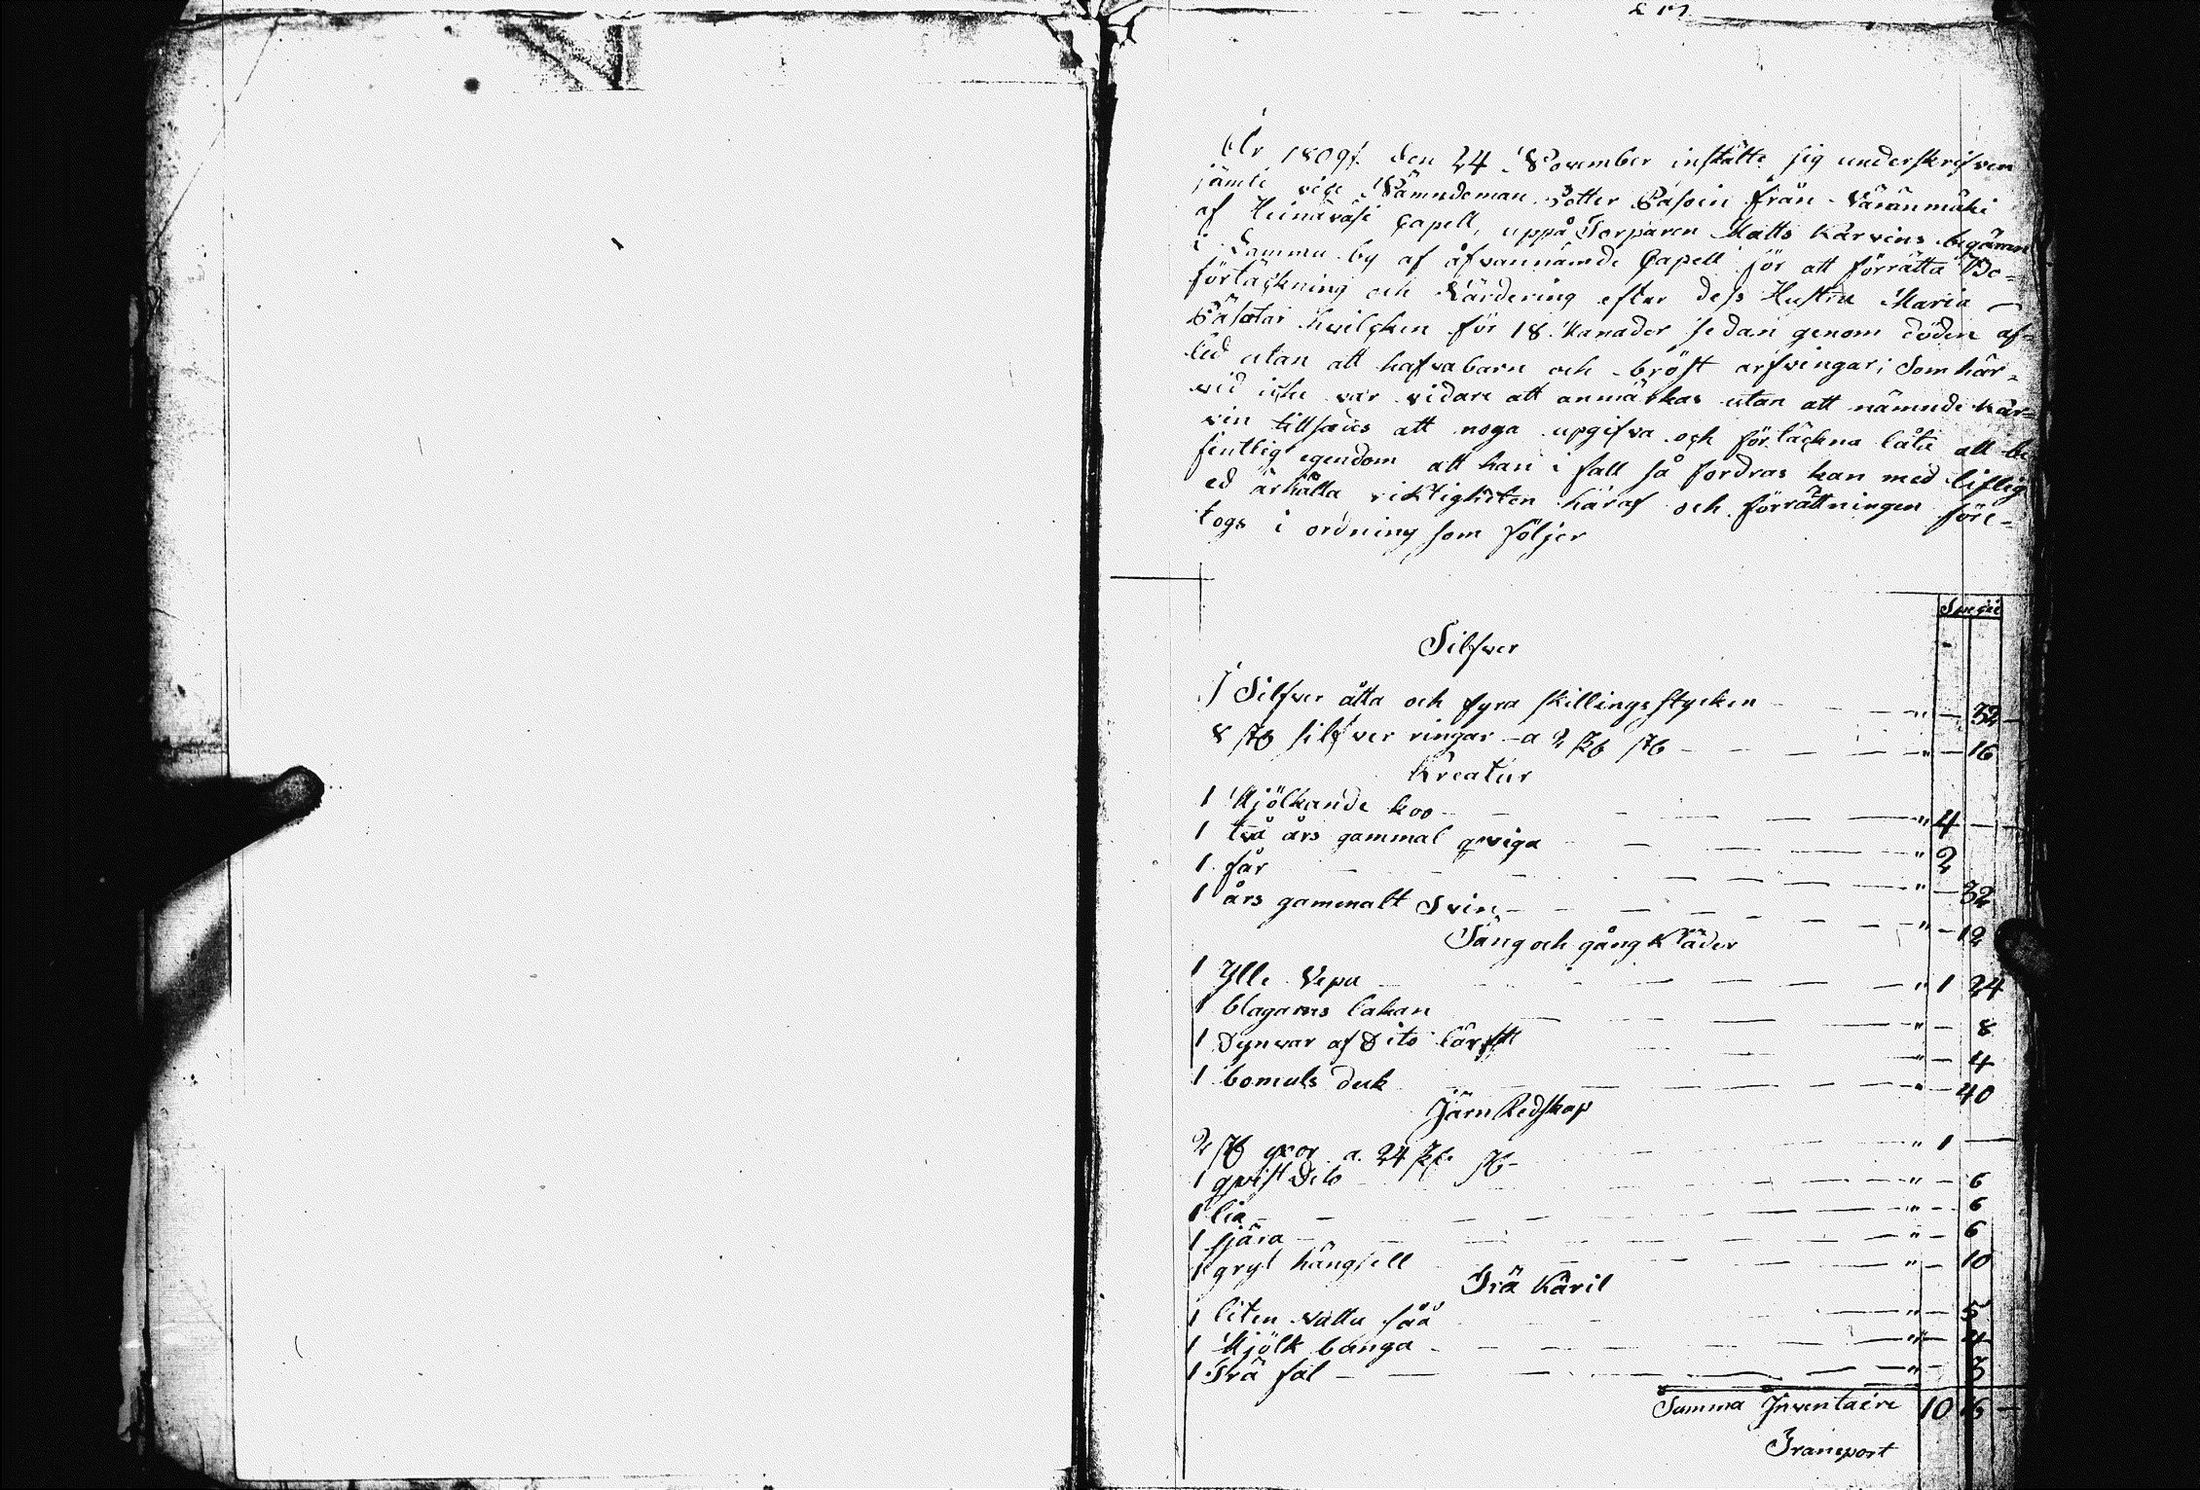 År 1809 den 24 November instälte sig underskrifven
jämte vice Nämndeman Petter Pasoin från Väränmäki
af Heinäväsi Capell, uppå Torparen Matts Kärvins begäran
i Lammu by af åfvannämde Capell för att förrätta Bo-
förtäckning och Värdering efter dess Hustru Maria
Pasotar hvilcken för 18 Manader sedan genom döden af-
led utan att hafva barn och bröst arfvingar; Som här-
vid icke var vidare att anmärkas utan att nämnde Kär-
vin tillsades att noga upgifva och förtäckna låta all be
fintlig egendom att han i fall så fordras kan med liflig
ed ärhålla riktigheten häraf och förrättningen före-
togs i ordning som följer
Specie
Silfver
I Silfver åtta och fyra skillings stycken " — 32 —
8 st silfver ringar a 2 sk st " — 16
Kreatur
1 Mjölkande koo " 4 —
1 två års gammal qviga " 2
1 får " — 32
1 års gammalt Svin " — 12
Säng och gång Kläder
1 Ylle Vepa " 1 24
1 blagarns lakan " — 8
1 Dynvar af Dito lärft " — 4
1 bomuls duk " — 40
Järn Redskap
2 st yxor a 24 sk st " 1 —
1 qvist Dito " — 6
1 lia " — 6
1 skära " — 6
1 gryt hängsell " — 10
Trä Käril
1 liten vattu såå " — 5
1 Mjölk bunga " — 4
1 Trä fat " — 3
Summa Inventaire 10 16 —
Transport